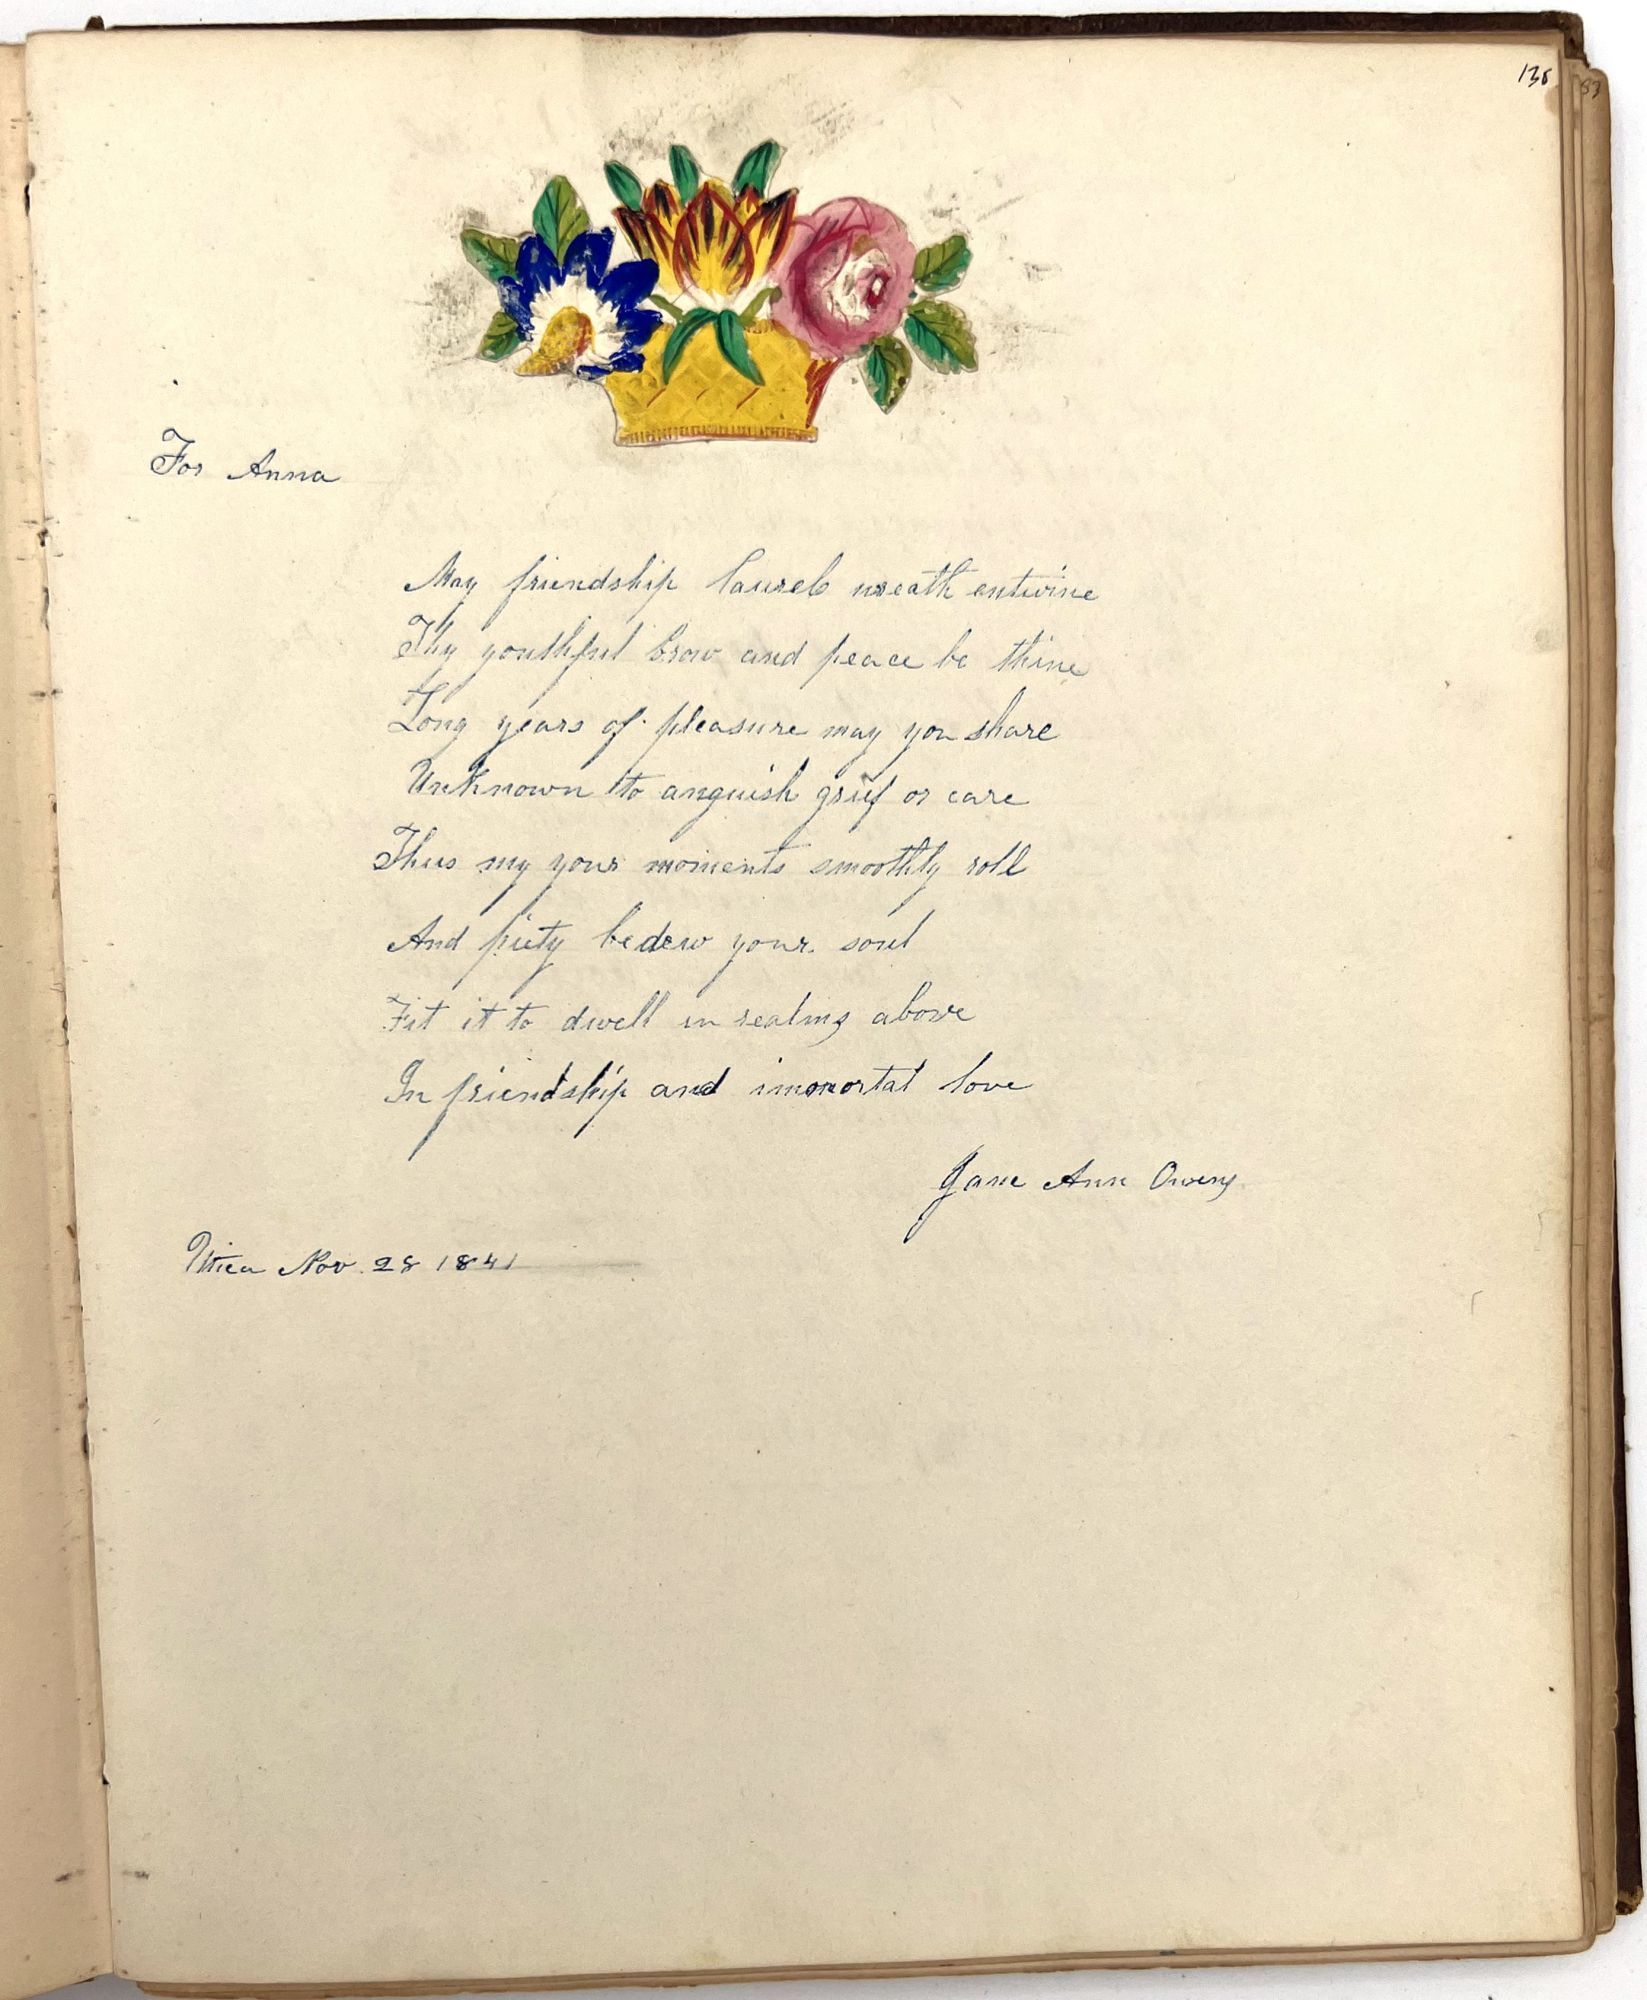 For Anna
May friendship laurels wreath entwine
Thy youthful brow and peace be thine
Long years of pleasure may you share
Unknown to anguish grief or care
Thus my your moments smoothly roll
And piety bedew your soul
Fit it to dwell in realms above
In friendship and immortal love
Jane Ann Owens
Utica Nov. 28 1841